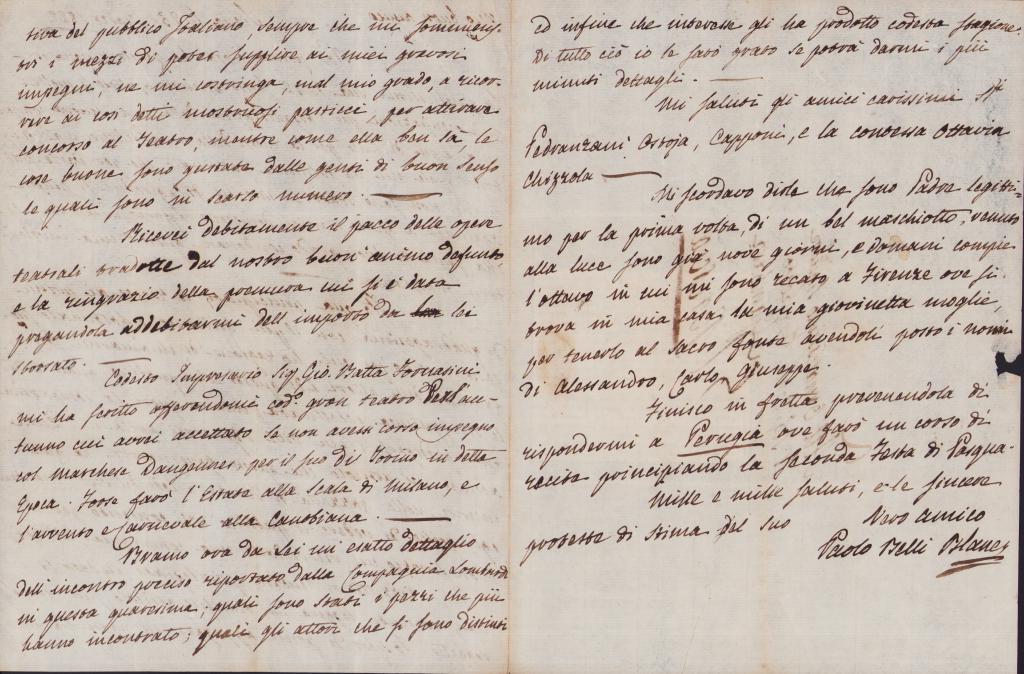 tiva del pubblico Italiano, sempre che mi
ovi i mezzi di poter supplire ai miei gravosi
impegni, ne mi costringa, mal mio grado, a ricor-
rere ai così detti mostruosi pasticci, per attirare
concorso al Teatro, mentre come ella ben sà, le
cose buone sono gustate dalle genti di buon senso
le quali sono in scarso numero.
Ricevei debitamente il pacco delle opere
teatrali tradotte dal nostro buon amico defunto,
e la ringrazio della premura cui si è data
pregandola addebitarmi dell'importo da lei
sborsato.
Codesto Impresario Sig. Gio. Batta Fornasini
mi ha scritto offerendomi cod.o gran teatro
tunno cui avrei accettato se non avessi corso impegno
col marchese Dangennes, per il suo di Torino in detta
Epoca. Forse farò l'Estate alla Scala di Milano, e
l'avvento e Carnevale alla Canobiana.
Bramo ora da Lei un'esatto dettaglio
dell'incontro preciso riportato dalla Compagnia Lombardi
in questa quaresima; quali sono stati i pezzi che più
hanno incontrato; quali gli attori che si sono distinti
ed infine che interesse gli ha prodotto codesta stagione.
Di tutto ciò io le sarò grato se potrà darmi i più
minuti dettagli.
Mi saluti gli amici carissimi
Pedranzani, Ostoja, Capponi, e la contessa Ottavia
Chizzola
Mi scordavo dirle che sono Padre legitti-
mo per la prima volta, di un bel maschiotto, venuto
alla luce sono già nove giorni, e domani compie
l'ottavo in cui mi sono recato a Firenze ove si
trova in mia casa la mia giovinetta moglie,
per tenerlo al sacro fonte avendoli posto i nomi
di Alessandro, Carlo, Giuseppe.
Finisco in fretta prevenendola di
rispondermi a Perugia ove farò un corso di
recite principiando la seconda Festa di Pasqua.
Mille e mille saluti, e le sincere
proteste di stima del suo
Vero amico
Paolo Belli Blanes